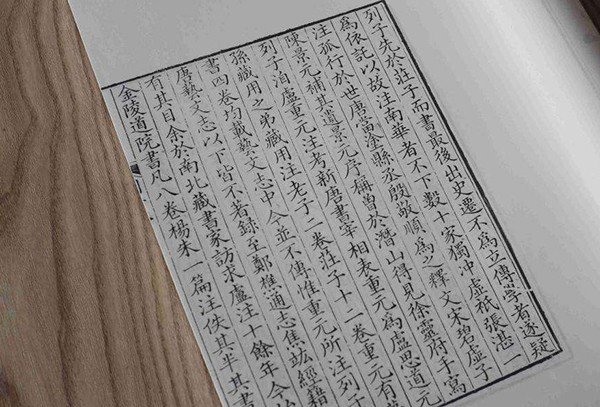 列子先於莊子而書最後出史遷不為立傳學者遂疑
為依託以故注南華者不下數十家獨沖虛秖張湛一
注孤行於世唐當塗縣丞殷敬順為之釋文宋碧虛子
陳景元補其遺景元序稱曾於潛山得見徐靈府手寫
列子洎盧重元注考新唐書宰相表重元為盧思道元
孫藏用之弟藏用注老子二卷莊子十二卷重元有
書四卷均載藝文志中今並不傳惟重元所注列子
唐藝文志以下皆不著錄至鄭樵通志焦竑經籍
有其目余於南北藏書家訪求盧注十餘年今
金陵道院書凡八卷楊朱一篇注佚其半其書